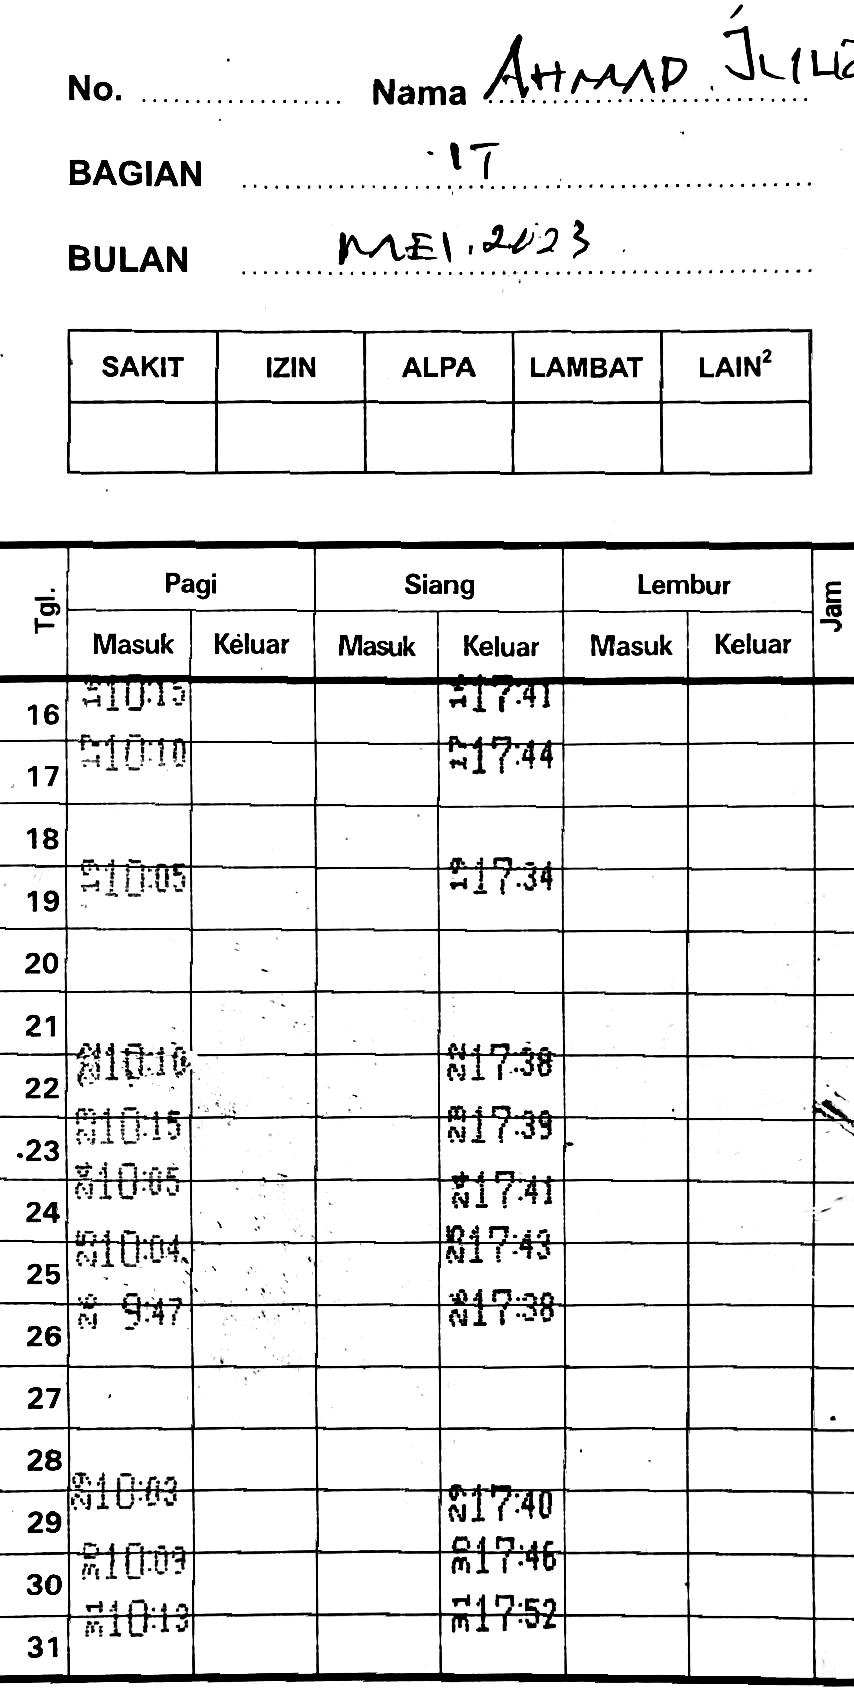 No. Nama AHMAD
BAGIAN IT
BULAN MEI. 2023
SAKIT IZIN ALPA LAMBAT LAIN²
Tgl. Pagi Siang Lembur Jam
Masuk Keluar Masuk Keluar Masuk Keluar
16 10:15 17:41
17 17 10:10 17 17:44
18
19 19 10:05 19 17:34
20
21
22 22 10:10 22 17:38
23 23 10:15 23 17:39
24 24 10:05 24 17:41
25 25 10:04 25 17:43
26 26 9:47 26 17:38
27
28
29 29 10:03 29 17:40
30 30 10:09 30 17:46
31 31 10:13 31 17:52